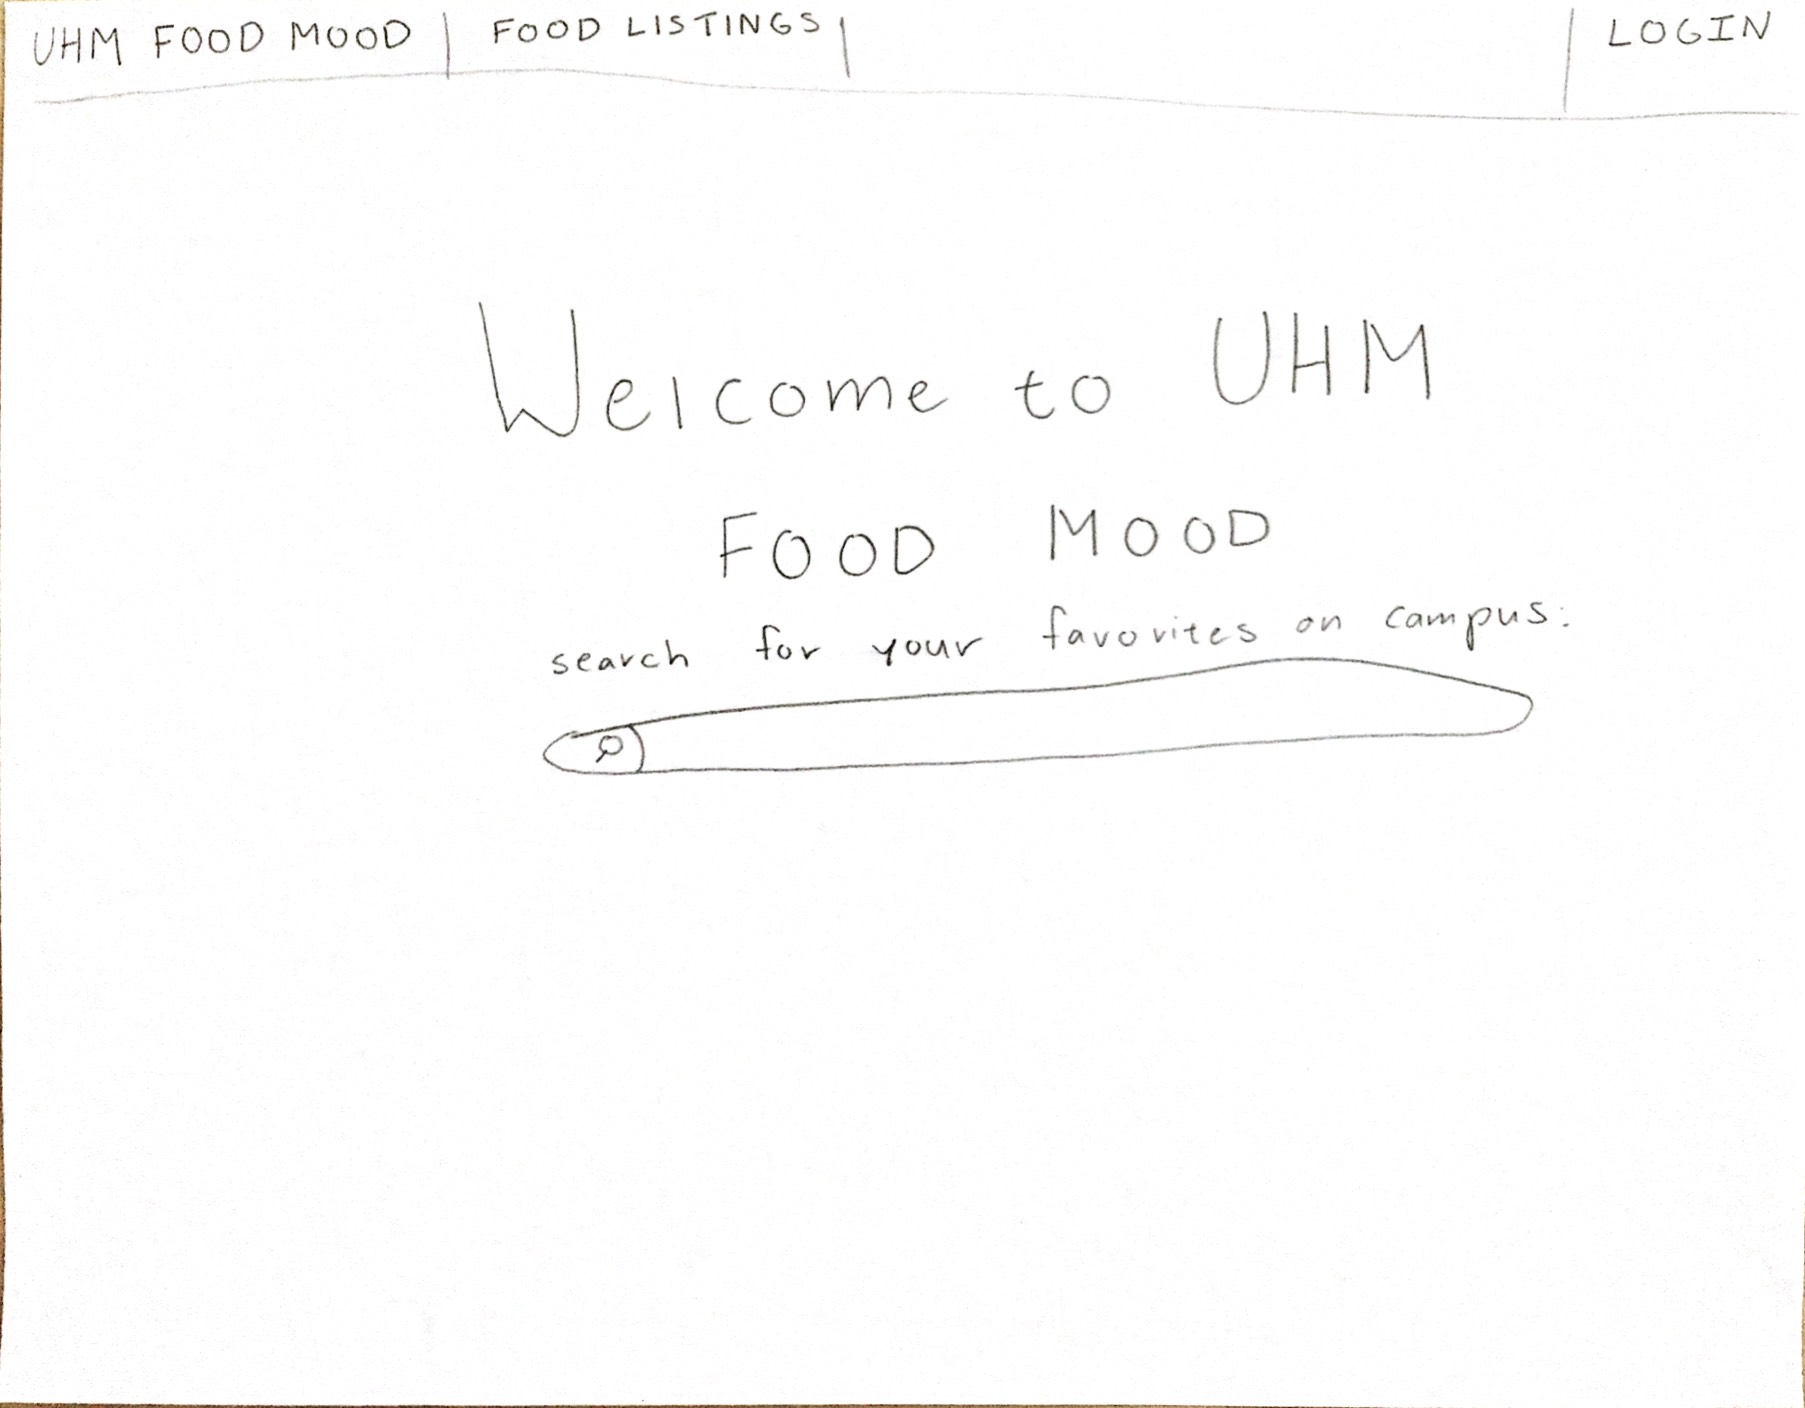 UHM FOOD MOOD FOOD LISTINGS LOGIN
Welcome to UHM
FOOD MOOD
search for your favorites on campus: